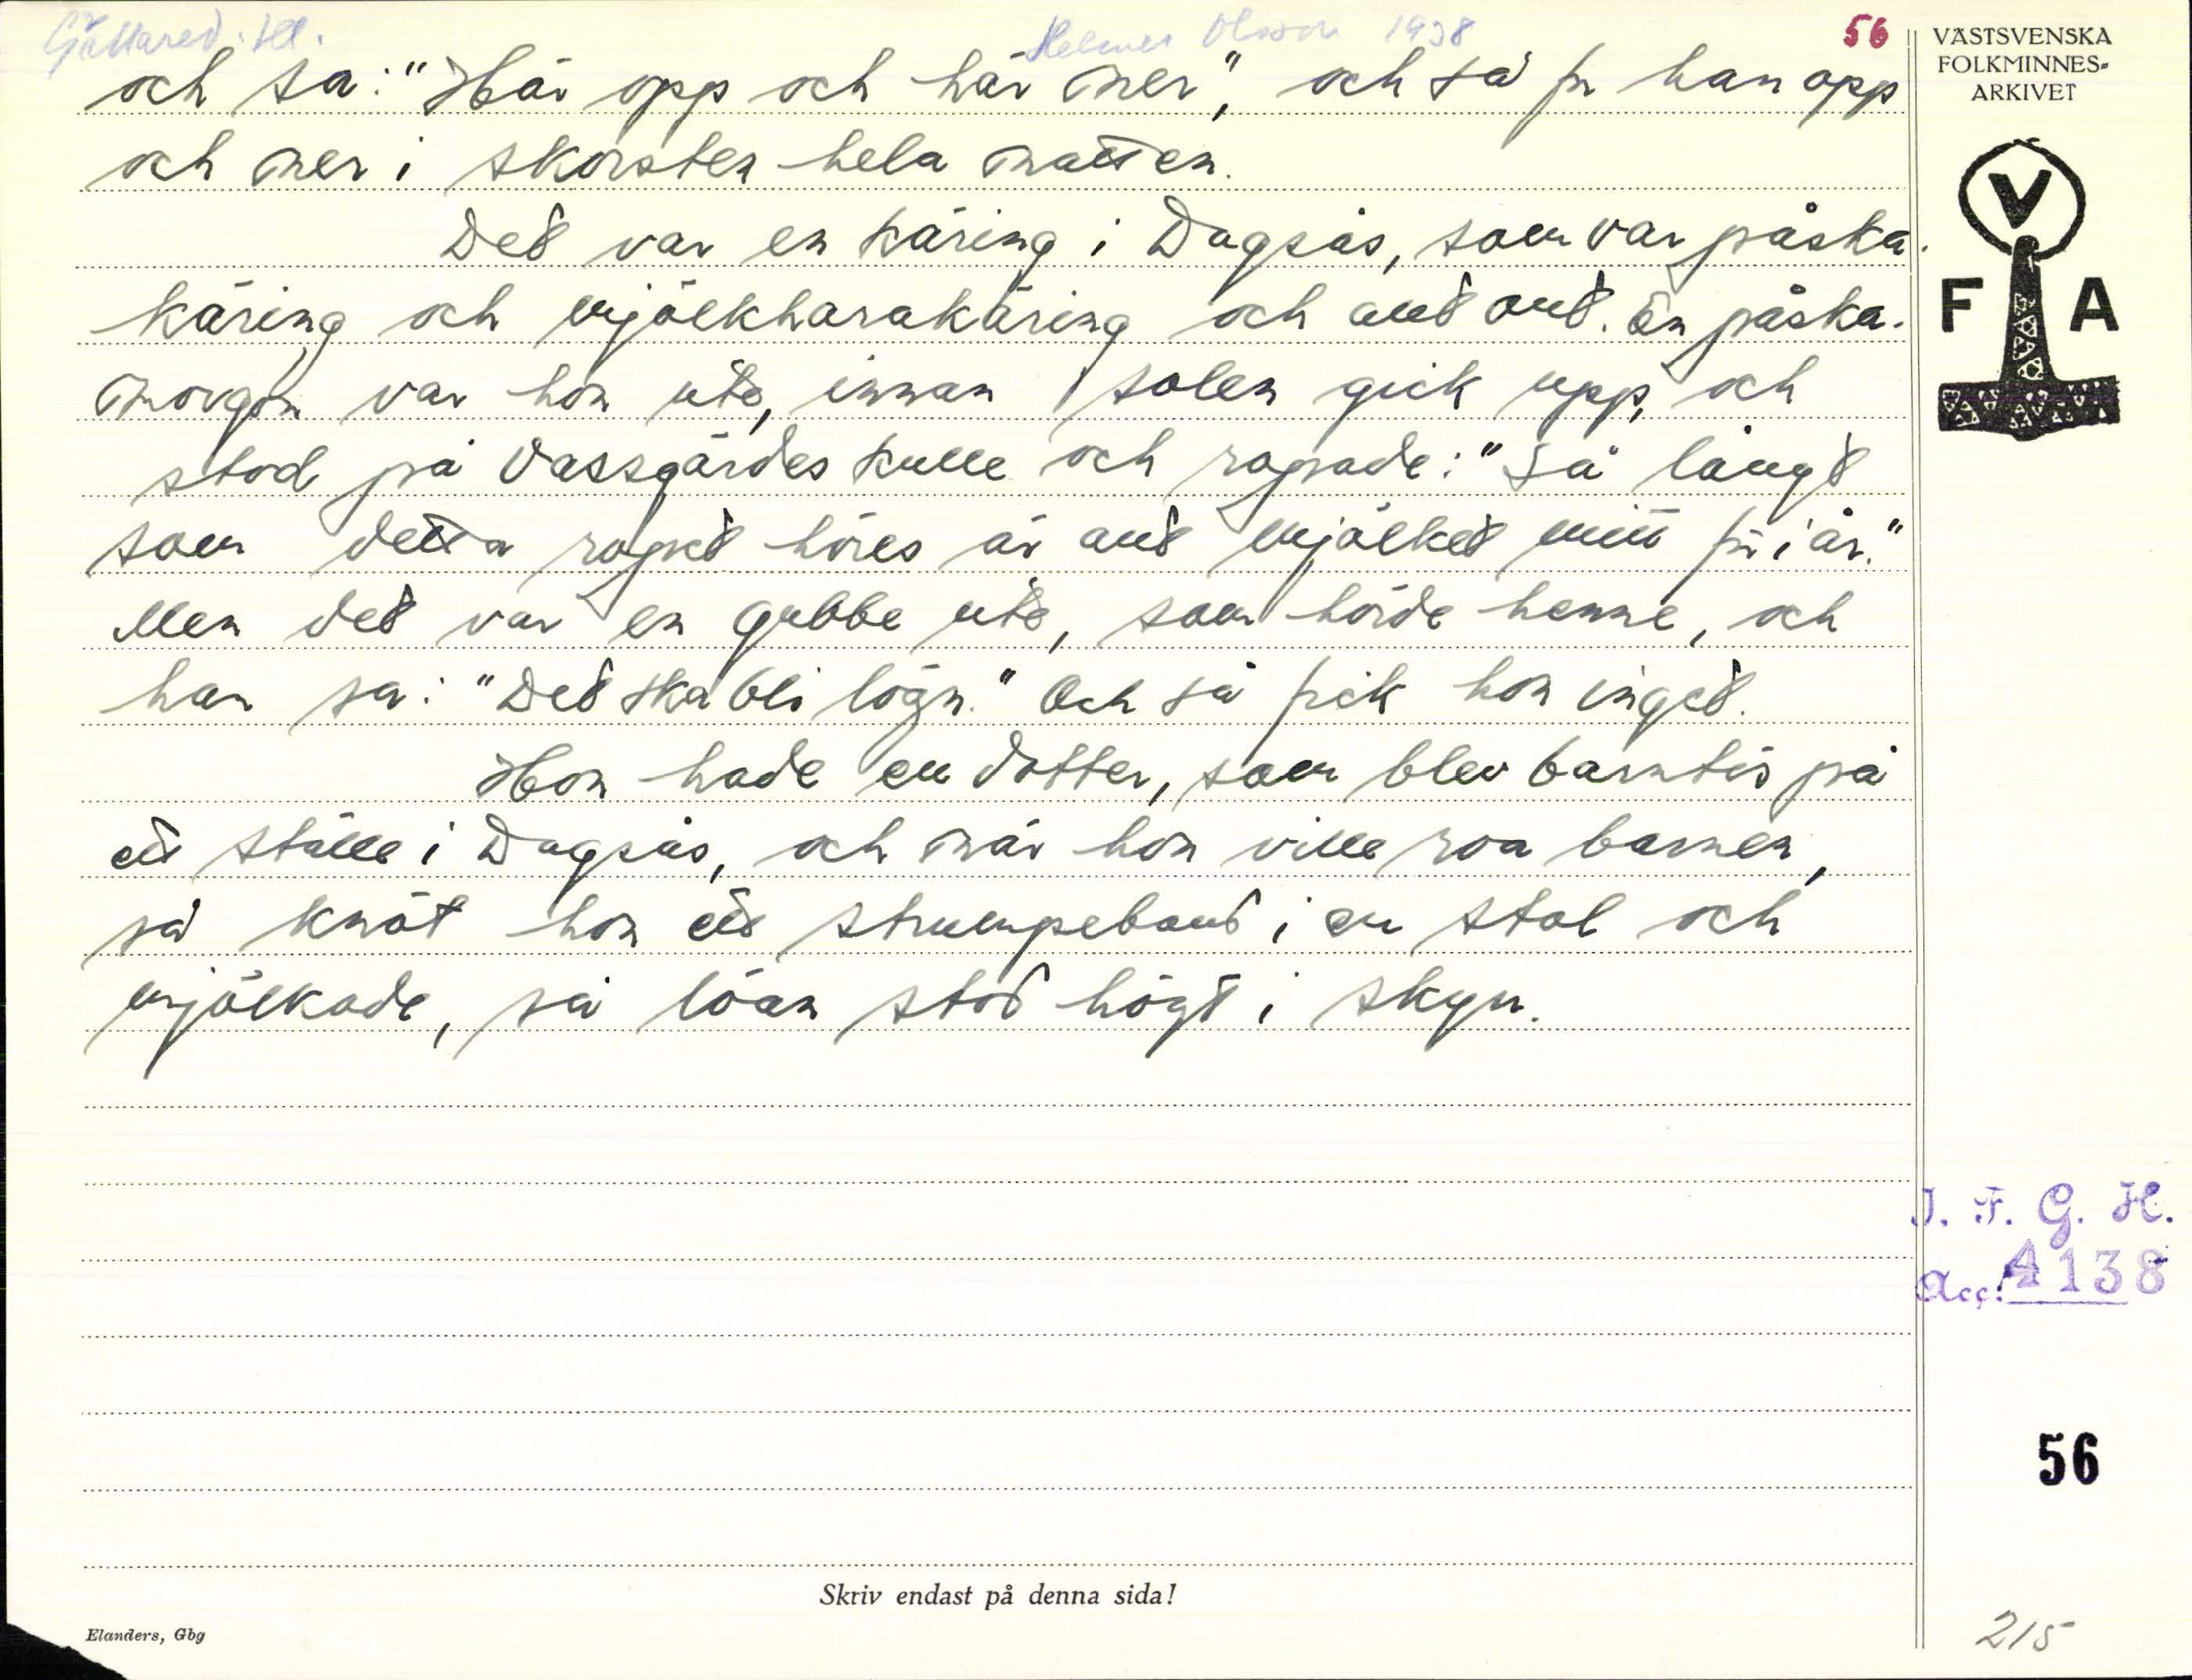 Gällared. Hl. Helmer Olsson 1938 56
och sa: "Här opp och här ner", och så fr han opp
och ner i skorsten hela natten.
Det var en käring i Dagsås, som var påska-
käring och mjölkharakäring och allt ont. En påska-
morgon var hon ute, innan solen gick upp, och
stod på Vassgärdes kulle och ropade: "Så långt
som detta ropet höres är allt mjölket mitt för i år."
Men det var en gubbe ute, som hörde henne, och
han sa: "Det ska bli lögn." Och så fick hon inget.
Hon hade en dotter, som blev barntös på
ett ställe i Dagsås, och när hon ville roa barnen,
så knöt hon ett strumpeband i en stol och
mjölkade, så löan stod högt i skyn.
VÄSTSVENSKA
FOLKMINNES-
ARKIVET
V
F A
I. F. G. H.
Acc. 4138
56
Skriv endast på denna sida!
Elanders, Gbg
215